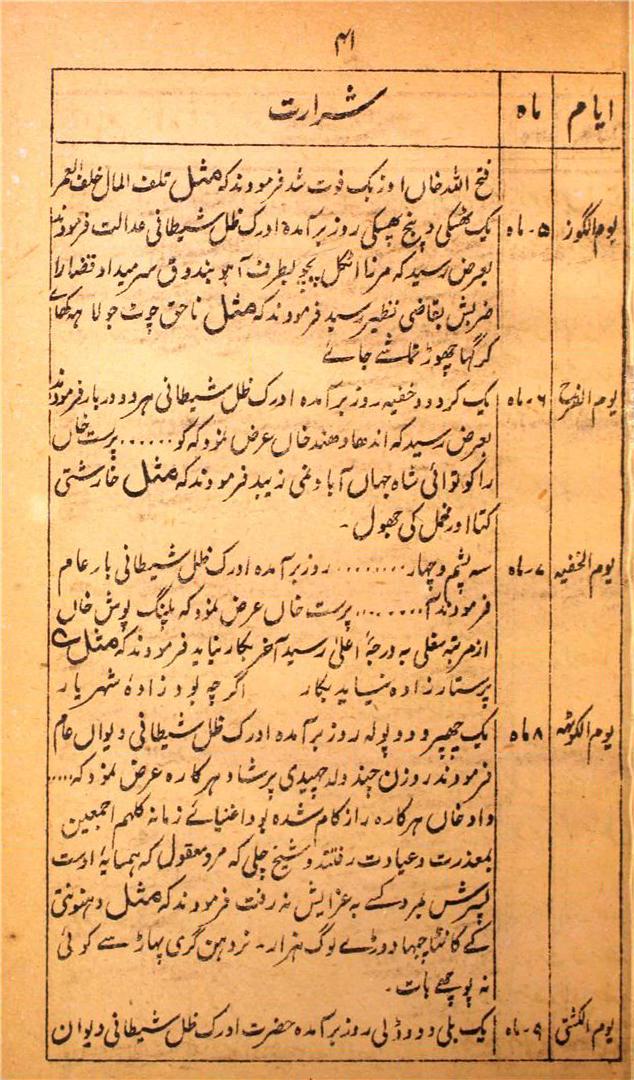 ۴۱
ایام ماہ شرارت
فتح اللہ خاں اوزبک فوت شد فرمودند کہ مثل تلف المال خلف العمر
یوم الگوز ۵۔ماہ یک پھسکی و پنج پھسکی روز برآمدہ ادرک ظل شیطانی عدالت فرمودند
بعرض رسید کہ مرزا اٹکل پچو بطرف آہو بندوق سرمیداد قضارا
ضربش بقاضی نظیر رسید فرمودند کہ مثل ناحق چوٹ جولاہہ کھائے
کرگہا چھوڑ تماشے جائے
۶۔ماہ یک کر و دو خفیہ روز برآمدہ ادرک ظل شیطانی سر دو دربار فرمودند
بعرض رسید کہ اندھا دھند خاں عرض نمود کہ گو...... پرست خاں
را کوتوالی شاہ جہاں آباد نمی زیبد فرمودند کہ مثل خارشتی
کتا اور مخمل کی جھول۔
یوم الخفیہ ۷۔ماہ سہ پشم و چہار......... روز برآمدہ ادرک ظل شیطانی بار عام
فرمودند ........ پرست خاں عرض نمود کہ پلنگ پوش خاں
از مرتبہ سفلی بہ درجۂ اعلیٰ رسید آخر بکار نیاید فرمودند کہ مثل ؎
پرستار زادہ نیاید بکار اگرچہ بود زادۂ شہریار
۸ ماہ یک چھپر و دو پولہ روز برآمدہ ادرک ظل شیطانی دیوان عام
فرمودند روزن چند ولد چپیدی پرشاد ہرکارہ عرض نمود کہ.....
داد خاں ہرکارہ را زکام شدہ بود اغنیائے زمانہ کلہم اجمعین
بمعذرت و عیادت رفتند و شیخ چلی کہ مرد معقول کہ ہمسایۂ اوست
پسرش بمرد کسے بہ عزایش نہ رفت فرمودند کہ مثل دھنونتی
کے کانٹا چبھا دوڑے لوگ ہزار۔ نردھن گری پہاڑ سے کوئی
نہ پوچھے بات۔
یوم الکشتی ۹۔ماہ یک بلی و دو ڈلی روز برآمدہ حضرت ادرک ظل شیطانی دیوان